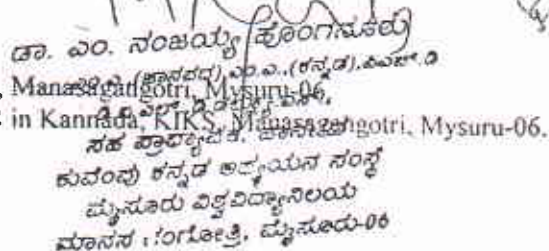 ಡಾ. ಎಂ. ನಂಜಯ್ಯ ಹೊಂಗನೂರು
(ಜಾನಪದ), ಎಂ.ಎ., (ಕನ್ನಡ), ಪಿಎಚ್.ಡಿ
Manasagangotri, Mysuru-06,
in Kannada, KIKS, Manasagangotri, Mysuru-06.
ಸಹ ಪ್ರಾಧ್ಯಾಪಕ,
ಕುವೆಂಪು ಕನ್ನಡ ಅಧ್ಯಯನ ಸಂಸ್ಥೆ
ಮೈಸೂರು ವಿಶ್ವವಿದ್ಯಾನಿಲಯ
ಮಾನಸ ಗಂಗೋತ್ರಿ, ಮೈಸೂರು-06